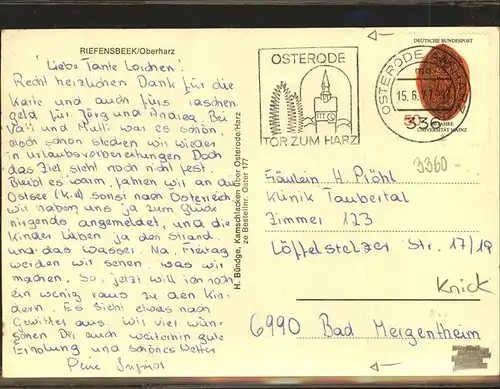 RIEFENSBEEK/Oberharz
Liebe Tante Lorchen!
Recht herzlichen Dank für die
Karte und auch fürs Taschen
geld für Jörg und Andrea. Bei
Vati und Mutti war es schön,
doch schon stecken wir wieder
in Urlaubsvorbereitungen Doch
das Ziel steht noch nicht fest.
Bleibt es warm, fahren wir an die
Ostsee (Kiel) sonst nach Österreich
wir haben uns ja zum Glück
nirgends angemeldet, und die
Kinder lieben ja den Strand
und das Wasser. Na, Freitag
werden wir sehen, was wir
machen. So, jetzt will ich noch
ein wenig raus zu den Kin-
dern. Es sieht etwas nach
Gewitter aus. Wir vier wün-
schen Dir auch weiterhin gute
Erholung und schönes Wetter
H. Bündge, Kamschlacken über Osterode/Harz
ze Bestellnr. Ostor 177
OSTERODE
TOR ZUM HARZ
OSTERODE
15.6.77
DEUTSCHE BUNDESPOST
50
JAHRE
UNIVERSITÄT MAINZ
336
3360
Fräulein H. Pröhl
Klinik Taubertal
Zimmer 123
Löffelstelzer Str. 17/19
Knick
6990 Bad Mergentheim